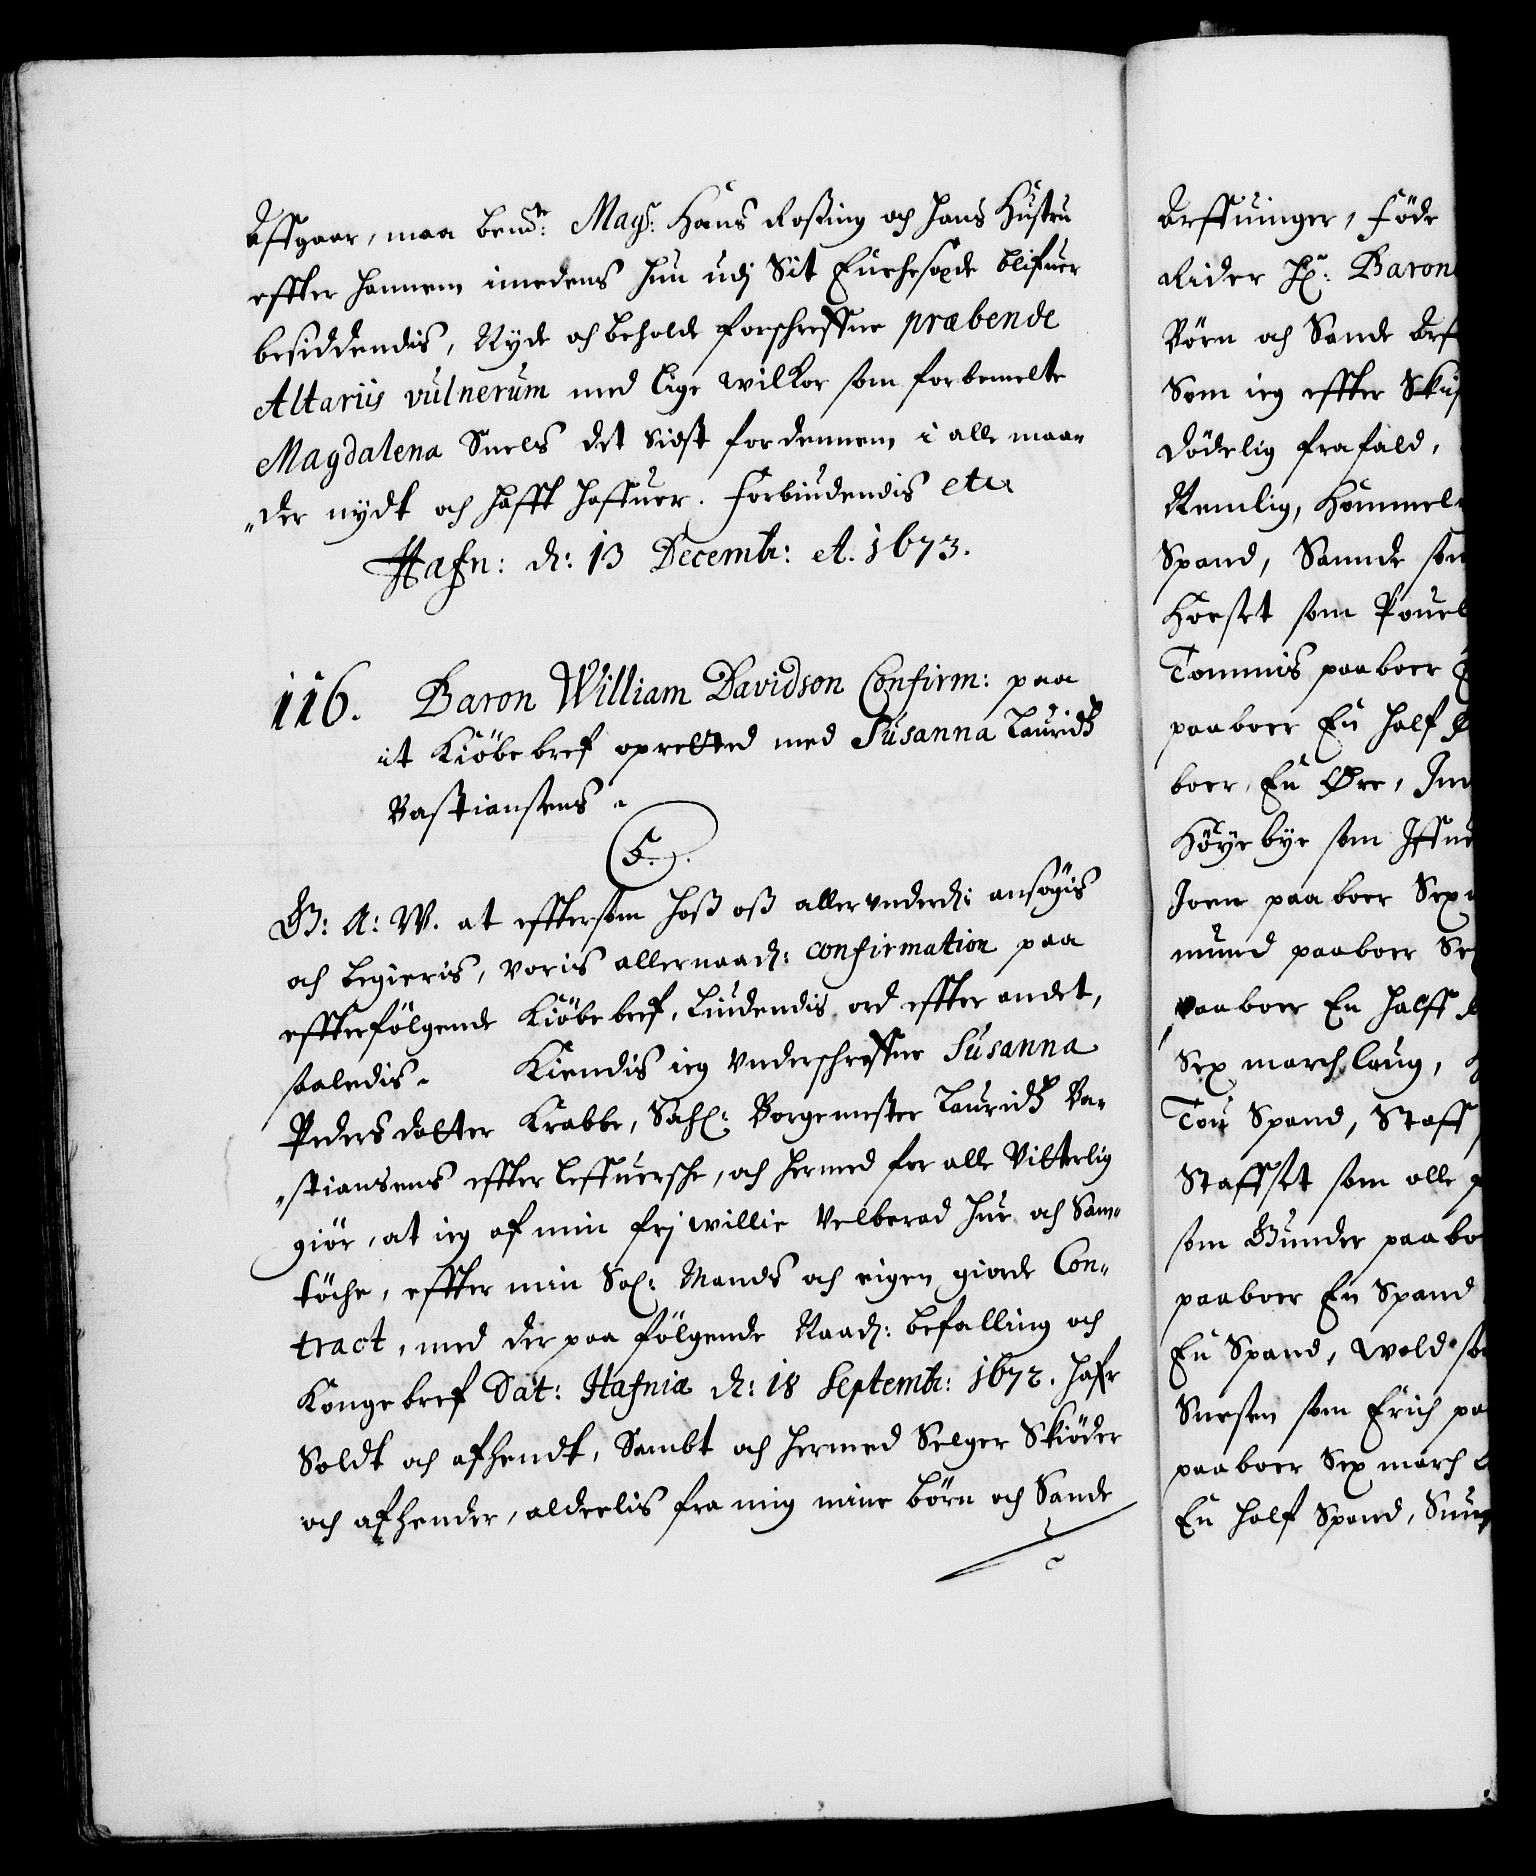 affgaar, maa bem.te Magr: Hans Rossing och hans Hustru
effter hannem imedens hun udj Sit Enchesæde blifuer
besiddendis, Nyde och beholde forschreffne præbende
Altariis vulnerum med lige wilkor som forbemelte
Magdalena Snels det sidst for dennem i alle maa-
der nydt och hafft haffuer. Forbiudendis etc
Hafn: d: 13 Decembr: A. 1673.
116. Baron William Davidson Confirm: paa
it Kiöbebref opretted med Susanna Lauridtz
Bastiansens.
C5.
G: A: W. at efftersom hoss oss allerunderd: ansögis
och begieris, voris allernaad: confirmation paa
effterfölgende Kiöbebref, liudendis ord effter andet,
saaledis. Kiendis ieg underschreffne Susanna
Pedersdatter Krabbe, Sahl: Borgemester Lauridtz Ba-
stiansens effterleffuersche, och hermed for alle Vitterlig
giör, at ieg af min frj willie velberad hue och Sam-
töche, effter min Sal: Mands och eigen giorde Con-
tract, med der paa fölgende Naad: befalling och
Kongebref Dat: Hafniæ d: 18 Septembr: 1672. hafr
Soldt och afhendt, Sambt och hermed Selger Skiöder
och afhender, alderlis fra mig mine börn och Sande
Arffuinger, föde
Rider Hr: Baron
Börn och Sande Arf
Som ieg effter Skif
dödelig frafald,
Nemlig, Hommel
Spand, Sannde som
Horset som Pouel
Tommis paaboer
paaboer En half
boer, En Øre, In
Höyebye som Iffue
Joen paaboer Sex
mund paaboer Se
paaboer En halff
Sex march laug,
Tou Spand, Staff
Staffset som olle
som Gunder paabo
paaboer En Spand
En Spand, wold so
Snesen som Erich pa
paaboer Sex march
En half Spand,